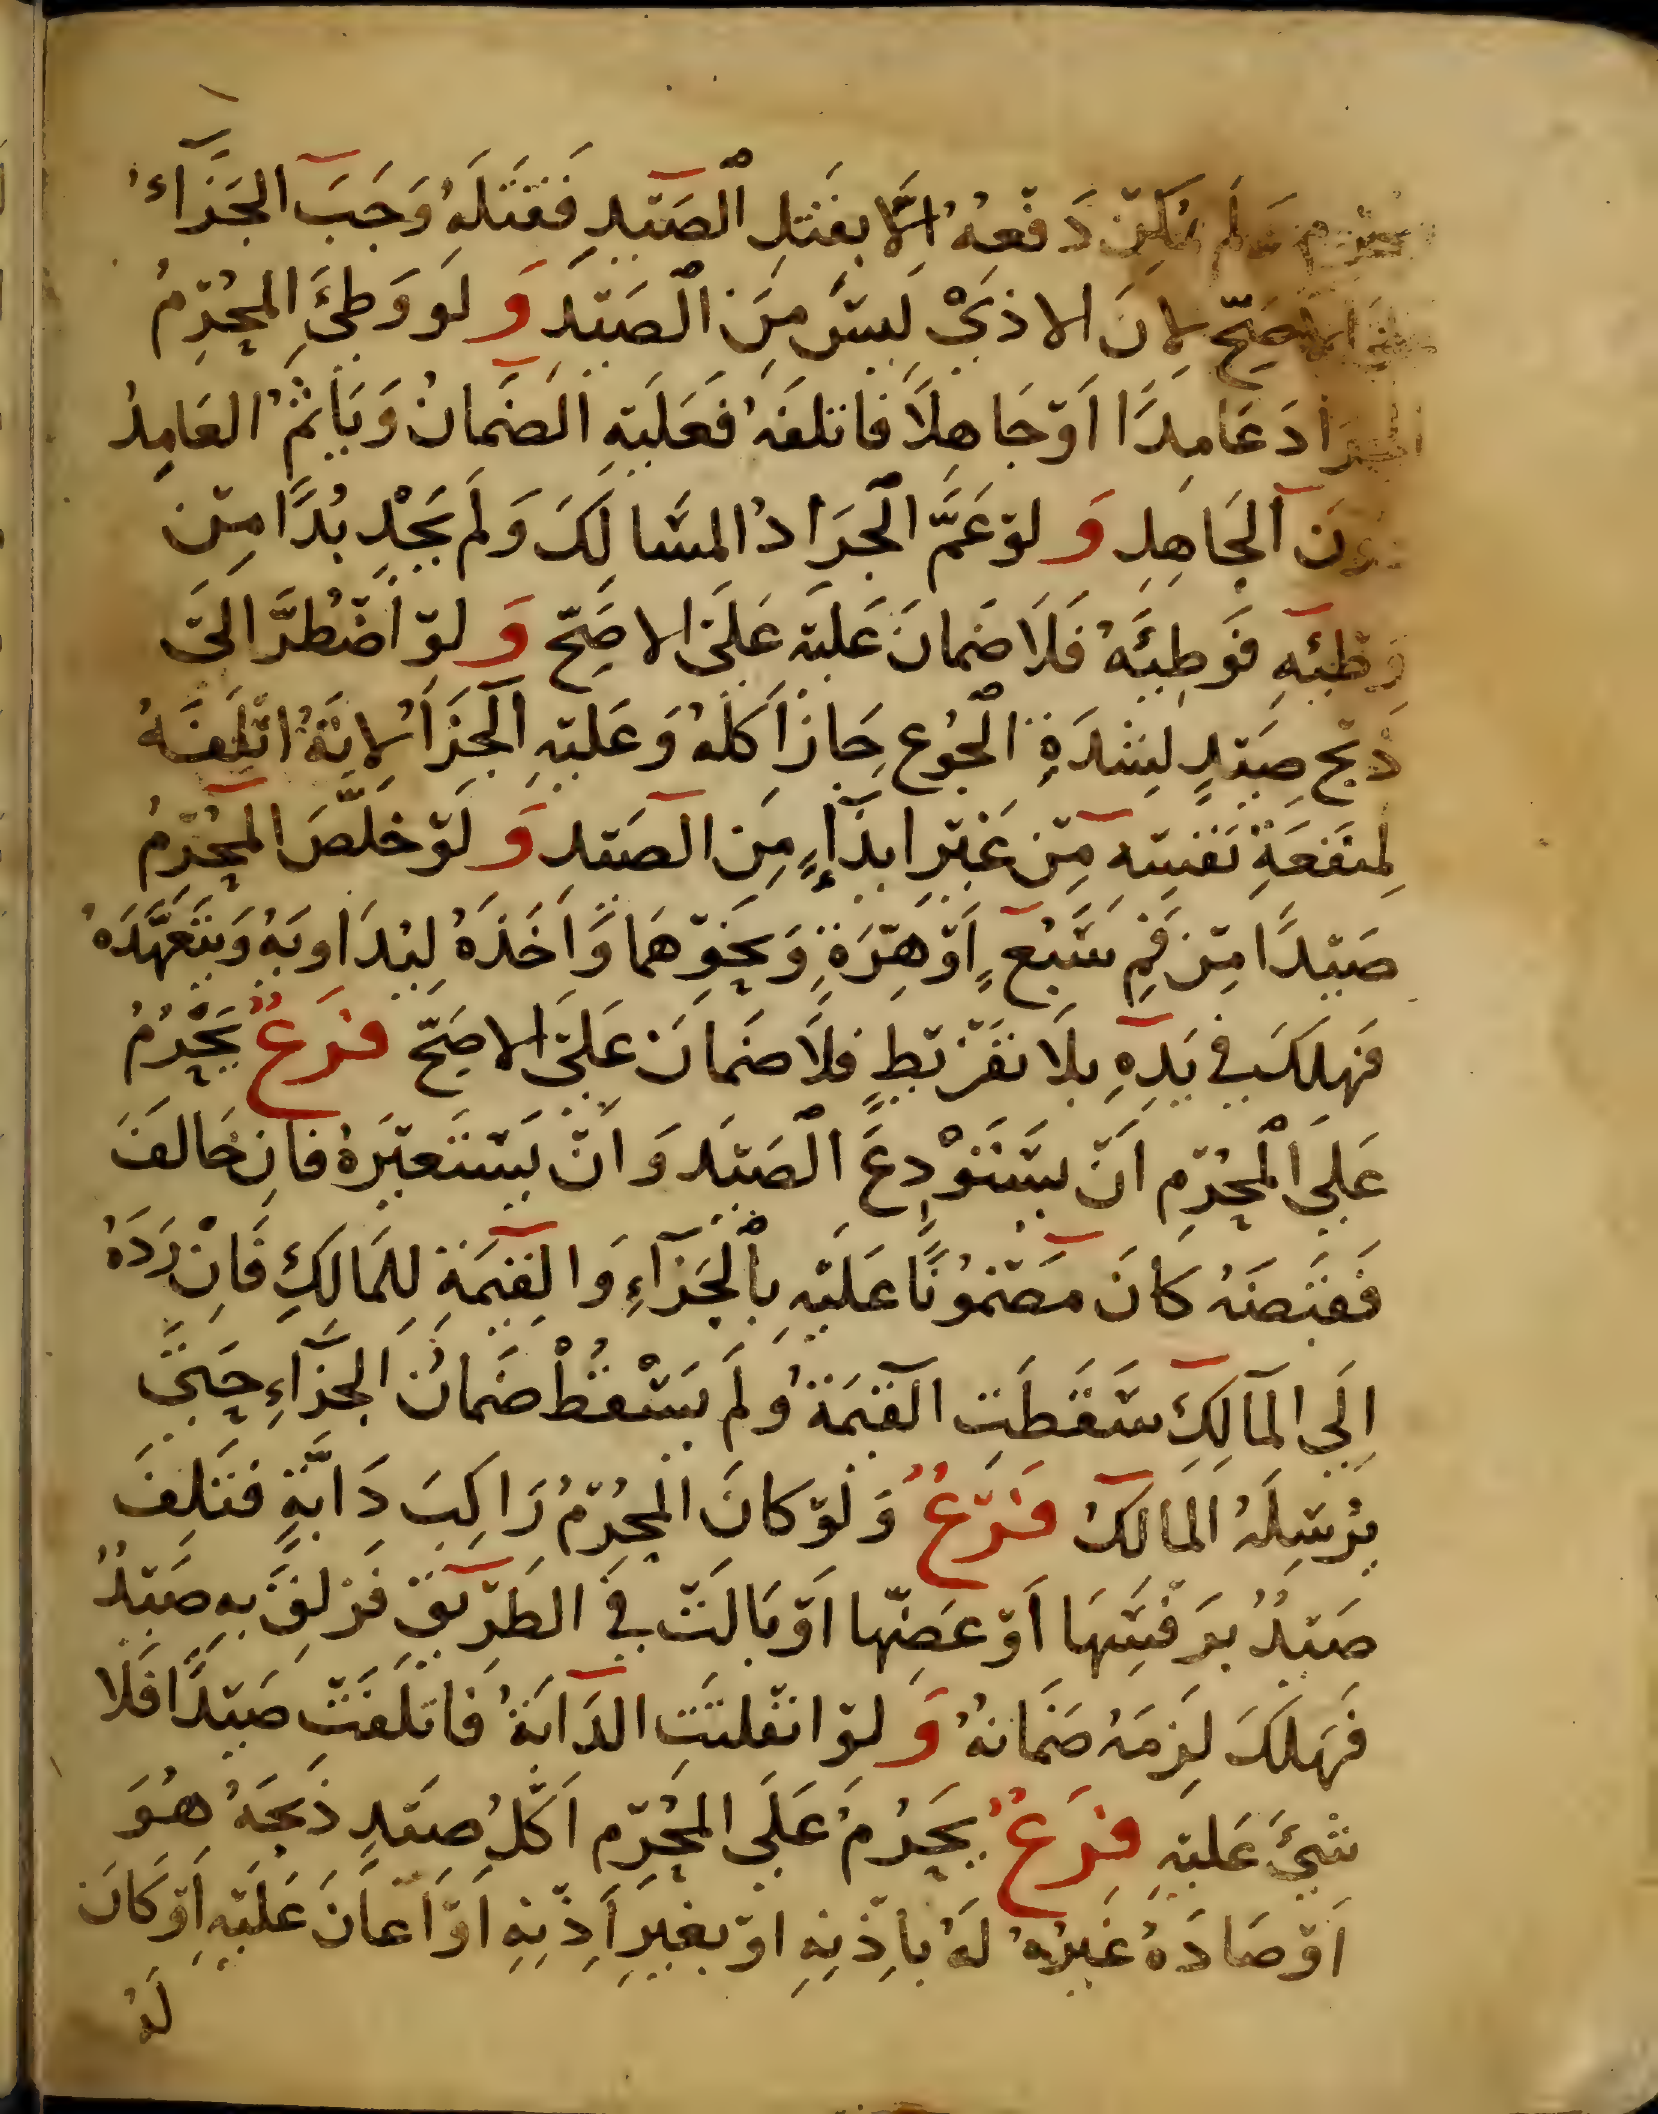 محرم ولم يمكن دفعه الا بقتل الصيد فقتله وجب الجزآء
على الاصح لان الاذي ليس من الصيد ولو وطئ المحرم
الجراد عامدا او جاهلا فاتلفه فعليه الضمان وياثم العامد
دون الجاهل ولو عم الجراد المسالك ولم يجد بدا من
وطئه فوطئه فلا ضمان عليه على الاصح ولو اضطر الى
ذبح صيد لشدة الجوع جاز اكله وعليه الجزا لانه اتلفه
لمنفعة نفسه من غير ايذآء من الصيد ولو خلص المحرم
صيدا من فم سبع او هرة ونحوهما واخذه ليداويه ويتعهده
فهلك في يده بلا تفريط فلا ضمان على الاصح فرع يحرم
على المحرم ان يستودع الصيد وان يستعيره فان خالف
فقبضه كان مضمونا عليه بالجزآء والقيمة للمالك فان رده
الى المالك سقطت القيمة ولم يسقط ضمان الجزآء حتى
يرسله المالك فرع ولو كان المحرم راكب دابة فتلف
صيد برفسها او عضها او بالت في الطريق فزلق به صيد
فهلك لزمه ضمانه ولو انفلتت الدابة فاتلفت صيدا فلا
شئ عليه فرع يحرم على المحرم اكل صيد ذبحه هو
او صاده غيره له باذنه او بغير اذنه او اعان عليه او كان
له